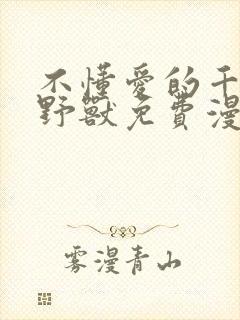 不懂愛的千
野獸免費漫
雾漫青山